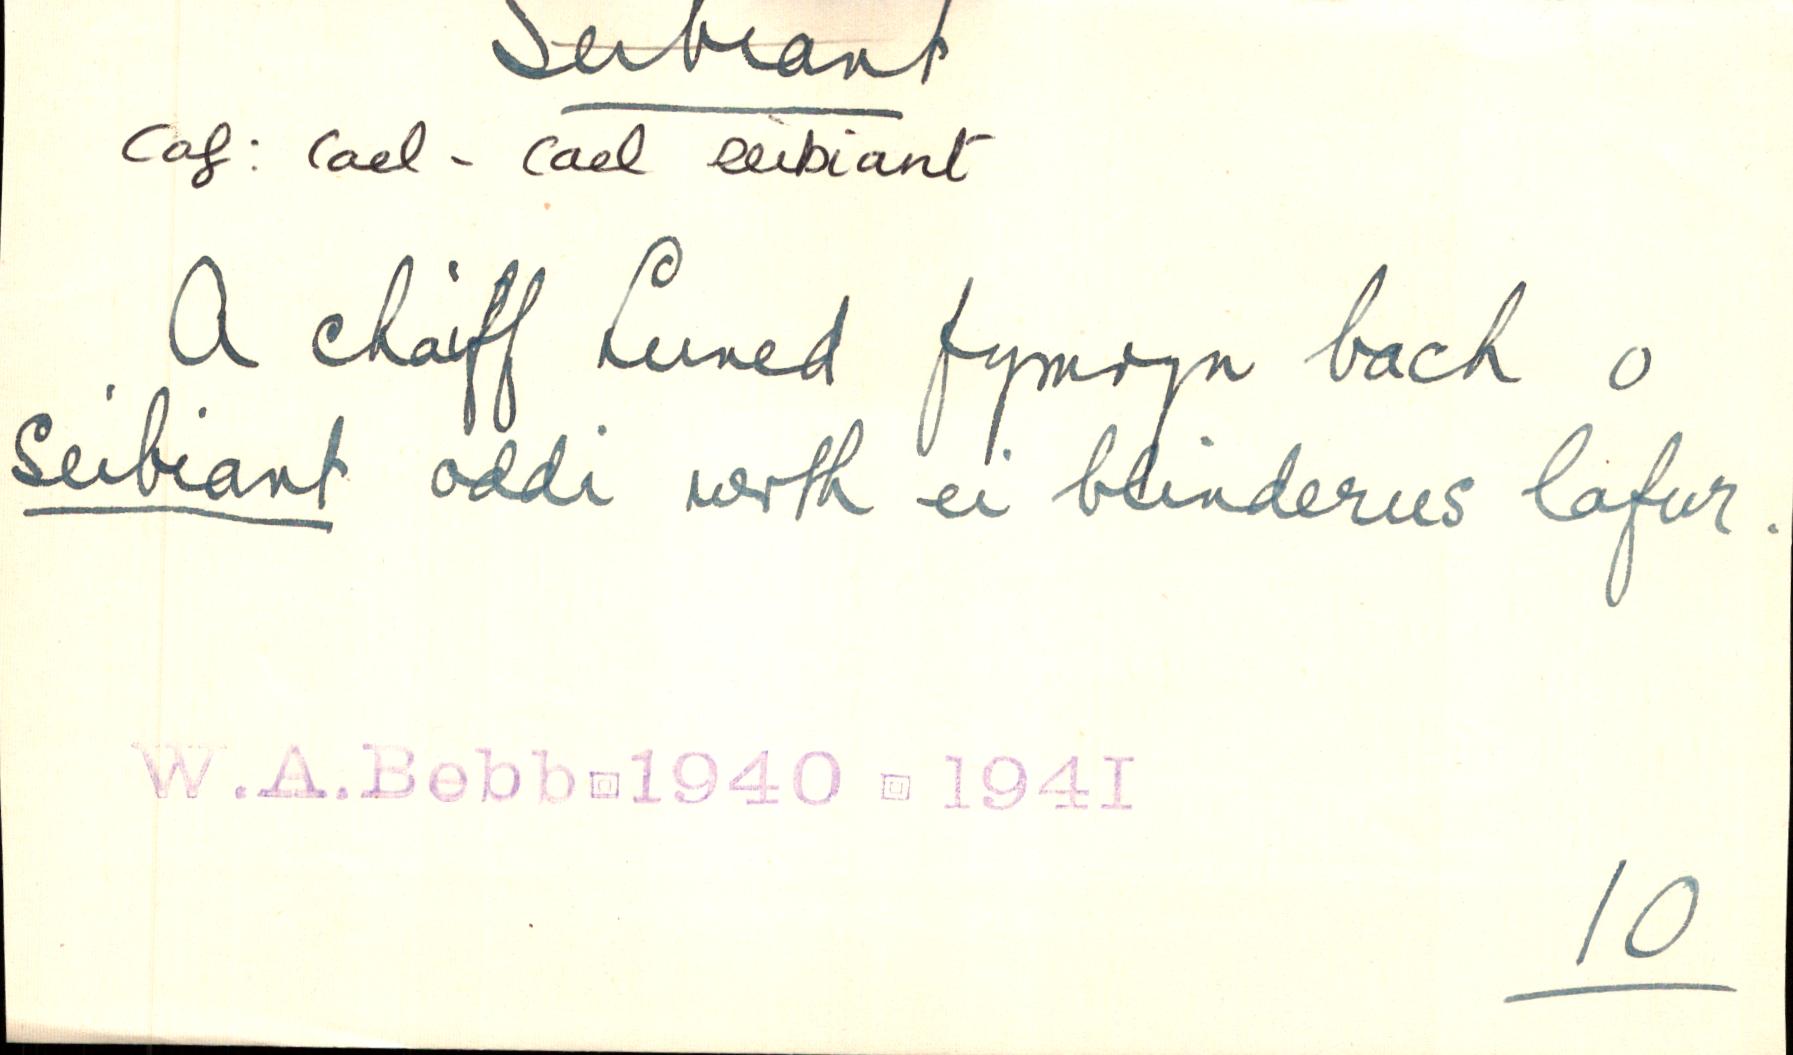 Seibiant
Caf: cael - cael seibiant
A chaiff Luned fymryn bach o
seibiant oddi wrth ei blinderus lafur.
W.A.Bebb 1940 1941
10